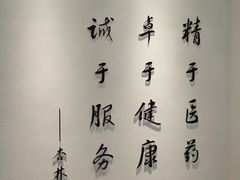 精于医药
卓于健康
诚于服务
——杏林